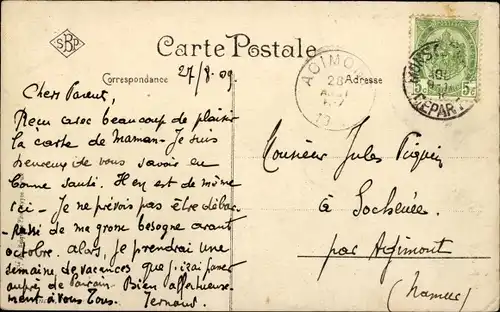 SBP
Carte Postale
Correspondance
Adresse
27/8.09
AGIMONT
28
MONS
DEPART
5c 5c
Chers Parents,
Reçu avec beaucoup de plaisir
la carte de maman - Je suis
heureux de vous savoir en
bonne santé. Il en est de même
ici - Je ne prévois pas être débar-
rassé de ma grosse besogne avant
octobre. Alors, je prendrai une
semaine de vacances que j'irai passer
auprès de Parrain. Bien affectueuse-
ment à vous Tous. Fernand.
Monsieur Jules
à
par Agimont
(Namur)